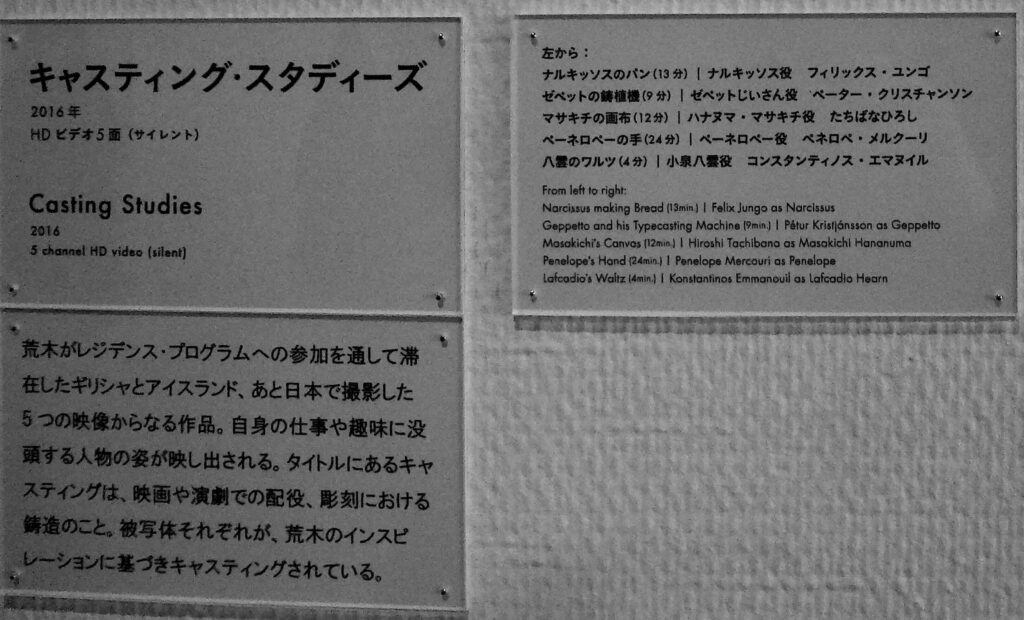 キャスティング・スタディーズ
2016年
HDビデオ5面（サイレント）
Casting Studies
2016
5 channel HD video (silent)
荒木がレジデンス・プログラムへの参加を通して滞
在したギリシャとアイスランド、あと日本で撮影した
5つの映像からなる作品。自身の仕事や趣味に没
頭する人物の姿が映し出される。タイトルにあるキャ
スティングは、映画や演劇での配役、彫刻における
鋳造のこと。被写体それぞれが、荒木のインスピ
レーションに基づきキャスティングされている。
左から：
ナルキッソスのパン（13分）｜ナルキッソス役　フィリックス・ユンゴ
ゼペットの鋳植機（9分）｜ゼペットじいさん役　ペーター・クリスチャンソン
マサキチの画布（12分）｜ハナヌマ・マサキチ役　たちばなひろし
ペーネロペーの手（24分）｜ペーネロペー役　ペネロペ・メルクーリ
八雲のワルツ（4分）｜小泉八雲役　コンスタンティノス・エマヌイル
From left to right:
Narcissus making Bread (13min.) | Felix Jungo as Narcissus
Geppetto and his Typecasting Machine (9min.) | Pétur Kristjánsson as Geppetto
Masakichi's Canvas (12min.) | Hiroshi Tachibana as Masakichi Hananuma
Penelope's Hand (24min.) | Penelope Mercouri as Penelope
Lafcadio's Waltz (4min.) | Konstantinos Emmanouil as Lafcadio Hearn